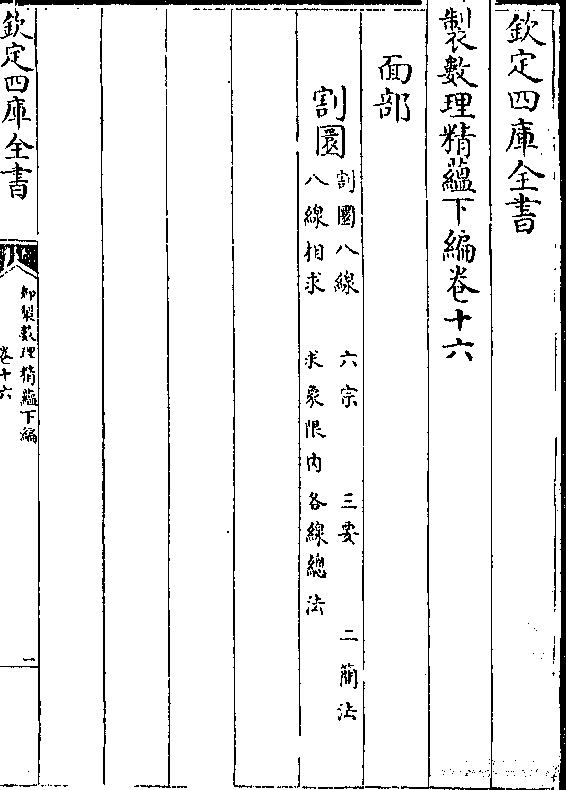 欽定四庫全書
製數理精蘊下編卷十六
面部
割圜
割圜八線 六宗 三要 二簡法
八線相求 求象限內各線總法
欽定四庫全書
御製數理精蘊下編
卷十六
一